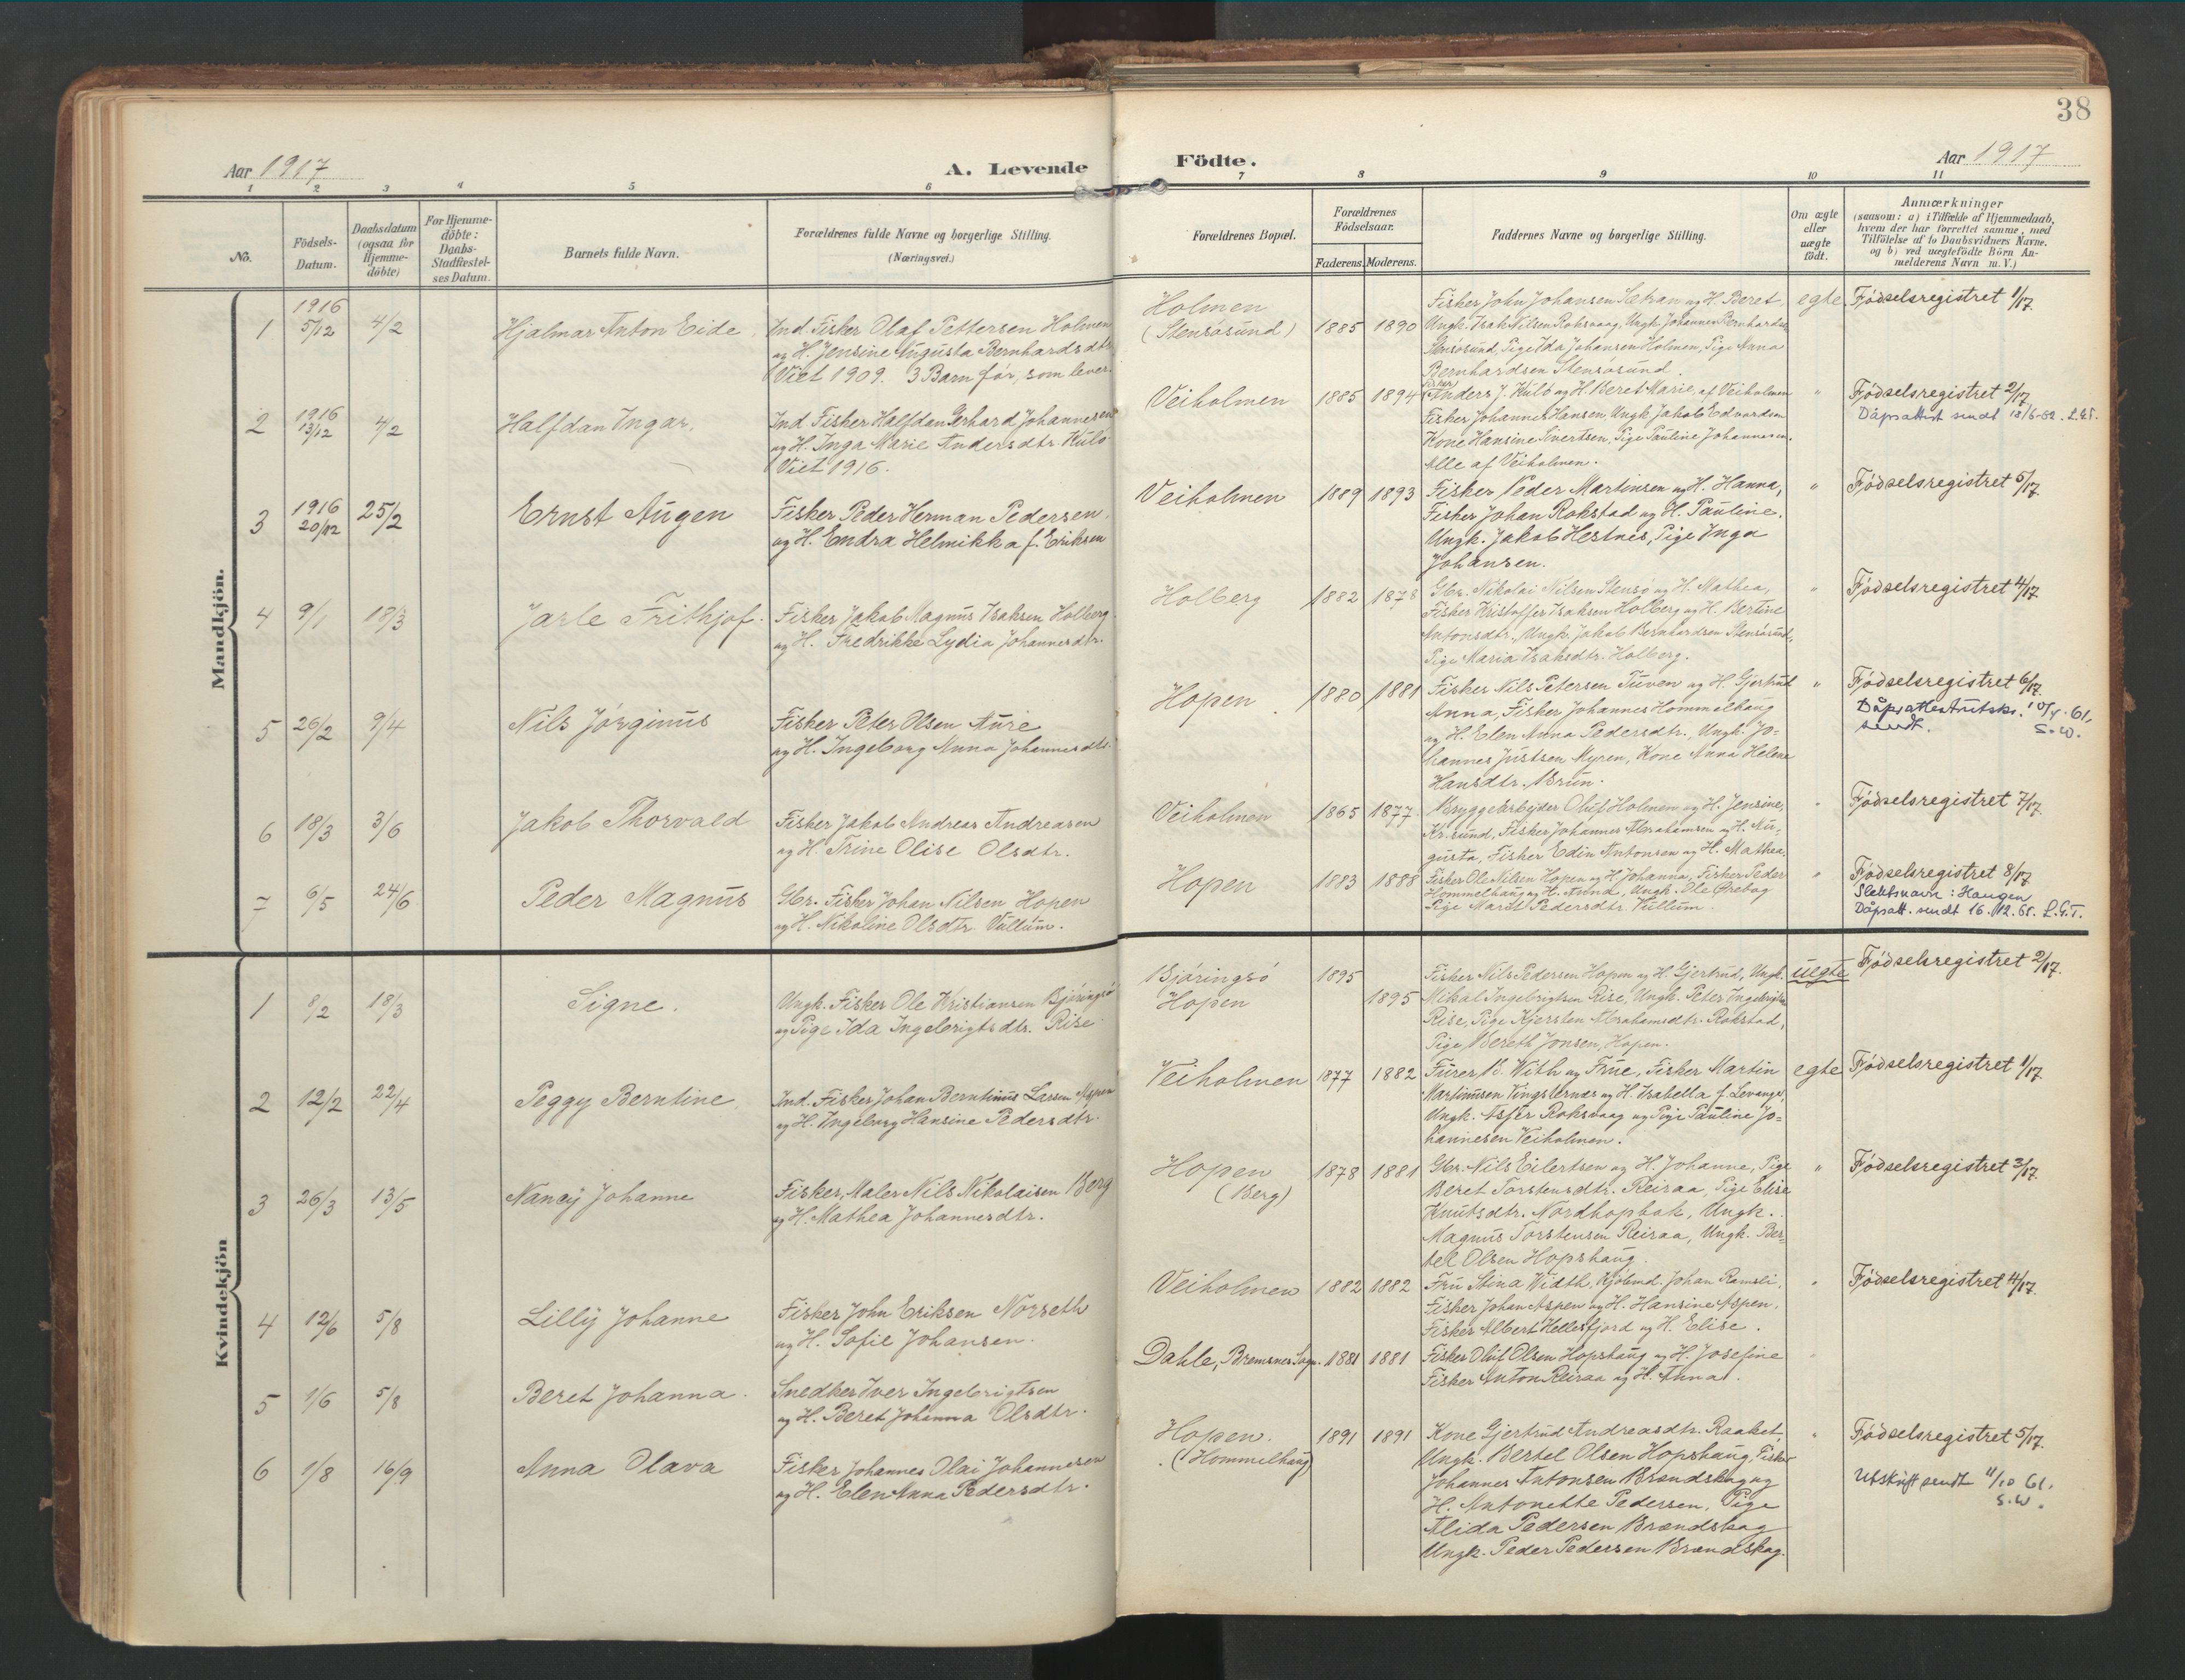 38
Aar 1917
A. Levende
Födte.
Aar 1917
1 2 3 4 5 6 7 8 9 10 11
No.
Födsels-Datum.
Daabsdatum (ogsaa for Hjemmedöbte)
For Hjemmedöbte: Daabs-Stadfæstelses Datum.
Barnets fulde Navn.
Forældrenes fulde Navne og borgerlige Stilling.
(Næringsvei.)
Forældrenes Bopæl.
Forældrenes Födselsaar.
Faderens. Moderens.
Faddernes Navne og borgerlige Stilling.
Om ægte eller uægte födt.
Anmærkninger
(saasom: a) i Tilfælde af Hjemmedaab, hvem der har forrettet samme, med Tilföielse af to Daabsvidners Navne, og b) ved uægtefödte Börn Anmelderens Navn m. V.)
Mandkjön.
1 1916 5/12 4/2 Hjalmar Anton Eide.
Ind. Fisker Olaf Pettersen Holmen
og H. Jensine Augusta Bernhardsdtr
Viet 1909. 3 Barn før, som lever.
Holmen
(Stensøsund) 1885 1890
Fisker John Johansen Sætran og H. Beret,
Ungk. Isak Nilsen Roksvaag, Ungk. Johannes Bernhardsen
Stensøsund, Pige Ida Johansen Holmen, Pige Anna
Bernhardsen Stensøsund.
egte Fjødselsregistret 1/17.
2 1916 13/12 4/2 Halfdan Ingar.
Ind. Fisker Halfdan Gerhard Johannesen
og H. Inga Marie Andersdtr. Kulø
Viet 1916.
Veiholmen 1885 1894
Fisker Anders J. Kulø og H. Beret Marie, af Veiholmen
Fisker Johannes Hansen, Ungk. Jakob Edvardsen
Kone Hansine Sivertsen, Pige Pauline Johannesen.
Alle af Veiholmen.
" Fjødselsregistret 2/17.
Dåpsattest sendt 18/6-52. L.G.T.
3 1916 20/12 25/2 Ernst Augen
Fisker Peder Herman Pedersen.
og H. Endra Helmikka f. Eriksen
Veiholmen 1889 1893
Fisker Peder Martinsen og H. Hanna,
Fisker Johan Rokstad og H. Pauline.
Ungk. Jakob Hestnes, Pige Inga
Johansen.
" Fjødselsregistret 5/17.
4 9/1 18/3 Jarle Frithjof.
Fisker Jakob Magnus Isaksen Holberg.
og H. Fredrikke Lydia Johannesdtr.
Holberg 1882 1878
Gbr. Nikolai Nilsen Stensø og H. Mathea,
Fisker Kristoffer Isaksen Holberg og H. Bertine
Antonsdtr., Ungk. Jakob Bernhardsen Stensøsund,
Pige Maria Isaksdtr. Holberg.
" Fjødselsregistret 4/17.
5 26/2 9/4 Nils Jørginus
Fisker Peter Olsen Aure
og H. Ingeborg Anna Johannesdtr.
Hopen. 1880 1881
Fisker Nils Petersen Tuven og H. Gjertrud
Anna, Fisker Johannes Hommelhaug
og H. Elen Anna Pedersdtr., Ungk. Jo=
hannes Justsen Myren, Kone Anna Helene
Hansdtr. Brun.
" Fjødselsregistret 6/17.
sendt. S.W.
6 18/3 3/6 Jakob Thorvald
Fisker Jakob Andreas Andreasen
og H. Trine Olise Olsdtr.
Veiholmen 1865 1877
Bryggearbeider Oluf Holmen og H. Jensine,
Kr.sund, Fisker Johannes Abrahamsen og H. Au=
gusta, Fisker Edin Antonsen og H. Mathea.
" Fjødselsregistret 7/17.
7 6/5 24/6 Peder Magnus
Gbr. Fisker Johan Nilsen Hopen
og H. Nikoline Olsdtr. Vullum.
Hopen 1883 1888
Fisker Ole Nilsen Hopen og H. Johanna, Fisker Peder
Hommelhaug og H. Anna, Ungk. Ole Ørebag
Pige Marit Pedersdtr. Vullum.
" Fjødselsregistret 8/17
Slektsnavn: Haugen
Dåpsatt. sendt 16.12.65. L.G.T.
Kvindekjön
1 8/2 18/3 Signe.
Ungk. Fisker Ole Kristiansen Bjøringsø
og Pige Ida Ingebrigtsdtr. Rise.
Bjøringsø 1895
Hopen 1895
Fisker Nils Pedersen Hopen og H. Gjertrud, Ungk.
Mikal Ingebrigtsen Rise, Ungk. Peter Ingebrigtsen
Rise, Pige Kjersten Abrahamsdtr. Rokstad,
Pige Bereth Jonsen, Hopen.
uegte Fjødselsregistret 2/17.
2 12/2 22/4 Peggy Berntine.
Ind. Fisker Johan Berntinus Larsen Aspen
og H. Ingeborg Hansine Pedersdtr.
Veiholmen 1877 1882
Furer B. With og Frue, Fisker Martin
Martinusen Vingsternes og H. Isabella f. Levanger,
Ungk. Asfer Roksvaag og Pige Pauline Jo=
hannesen Veiholmen.
egte Fjødselsregistret 1/17.
3 26/3 13/5 Nancy Johanne
Fisker, Maler Nils Nikolaisen Berg
og H. Mathea Johannesdtr.
Hopen
(Berg) 1878 1881
Gbr. Nils Eilertsen og H. Johanne, Pige
Beret Torstensdtr. Reiraa, Pige Elise
Knutsdtr. Nordhopbak, Ungk.
Magnus Torstensen Reiraa, Ungk. Ber=
tel Olsen Hopshaug.
" Fjødselsregistret 3/17.
4 12/6 5/8 Lilly Johanne
Fisker John Eriksen Norseth
og H. Sofie Johansen.
Veiholmen 1882 1882
Fru Stina Width, Kjøbmd. Johan Ramsli,
Fisker Johan Aspen og H. Hansine Aspen,
Fisker Albert Hellesfjord og H. Elise.
" Fjødselsregistret 4/17.
5 1/6 5/8 Beret Johanna.
Snedker Iver Ingebrigtsen
og H. Beret Johanna Olsdtr.
Dahle, Bremsnes Sogn. 1881 1881
Fisker Oluf Olsen Hopshaug og H. Josefine
Fisker Anton Reiraa og H. Anna.
6 1/8 16/9 Anna Olava
Fisker Johannes Olai Johannesen
og H. Elen Anna Pedersdtr.
Hopen.
(Hommelhaug) 1891 1891
Kone Gjertrud Andreasdtr. Raaket,
Ungk. Bertel Olsen Hopshaug, Fisker
Johannes Antonsen Brandskag og
H. Antonette Pedersen, Pige
Alida Pedersen Brandskag
Ungk. Peder Pedersen Brandskag.
" Fjødselsregistret 5/17.
Utskrift sendt 11/10 61.
S.W.